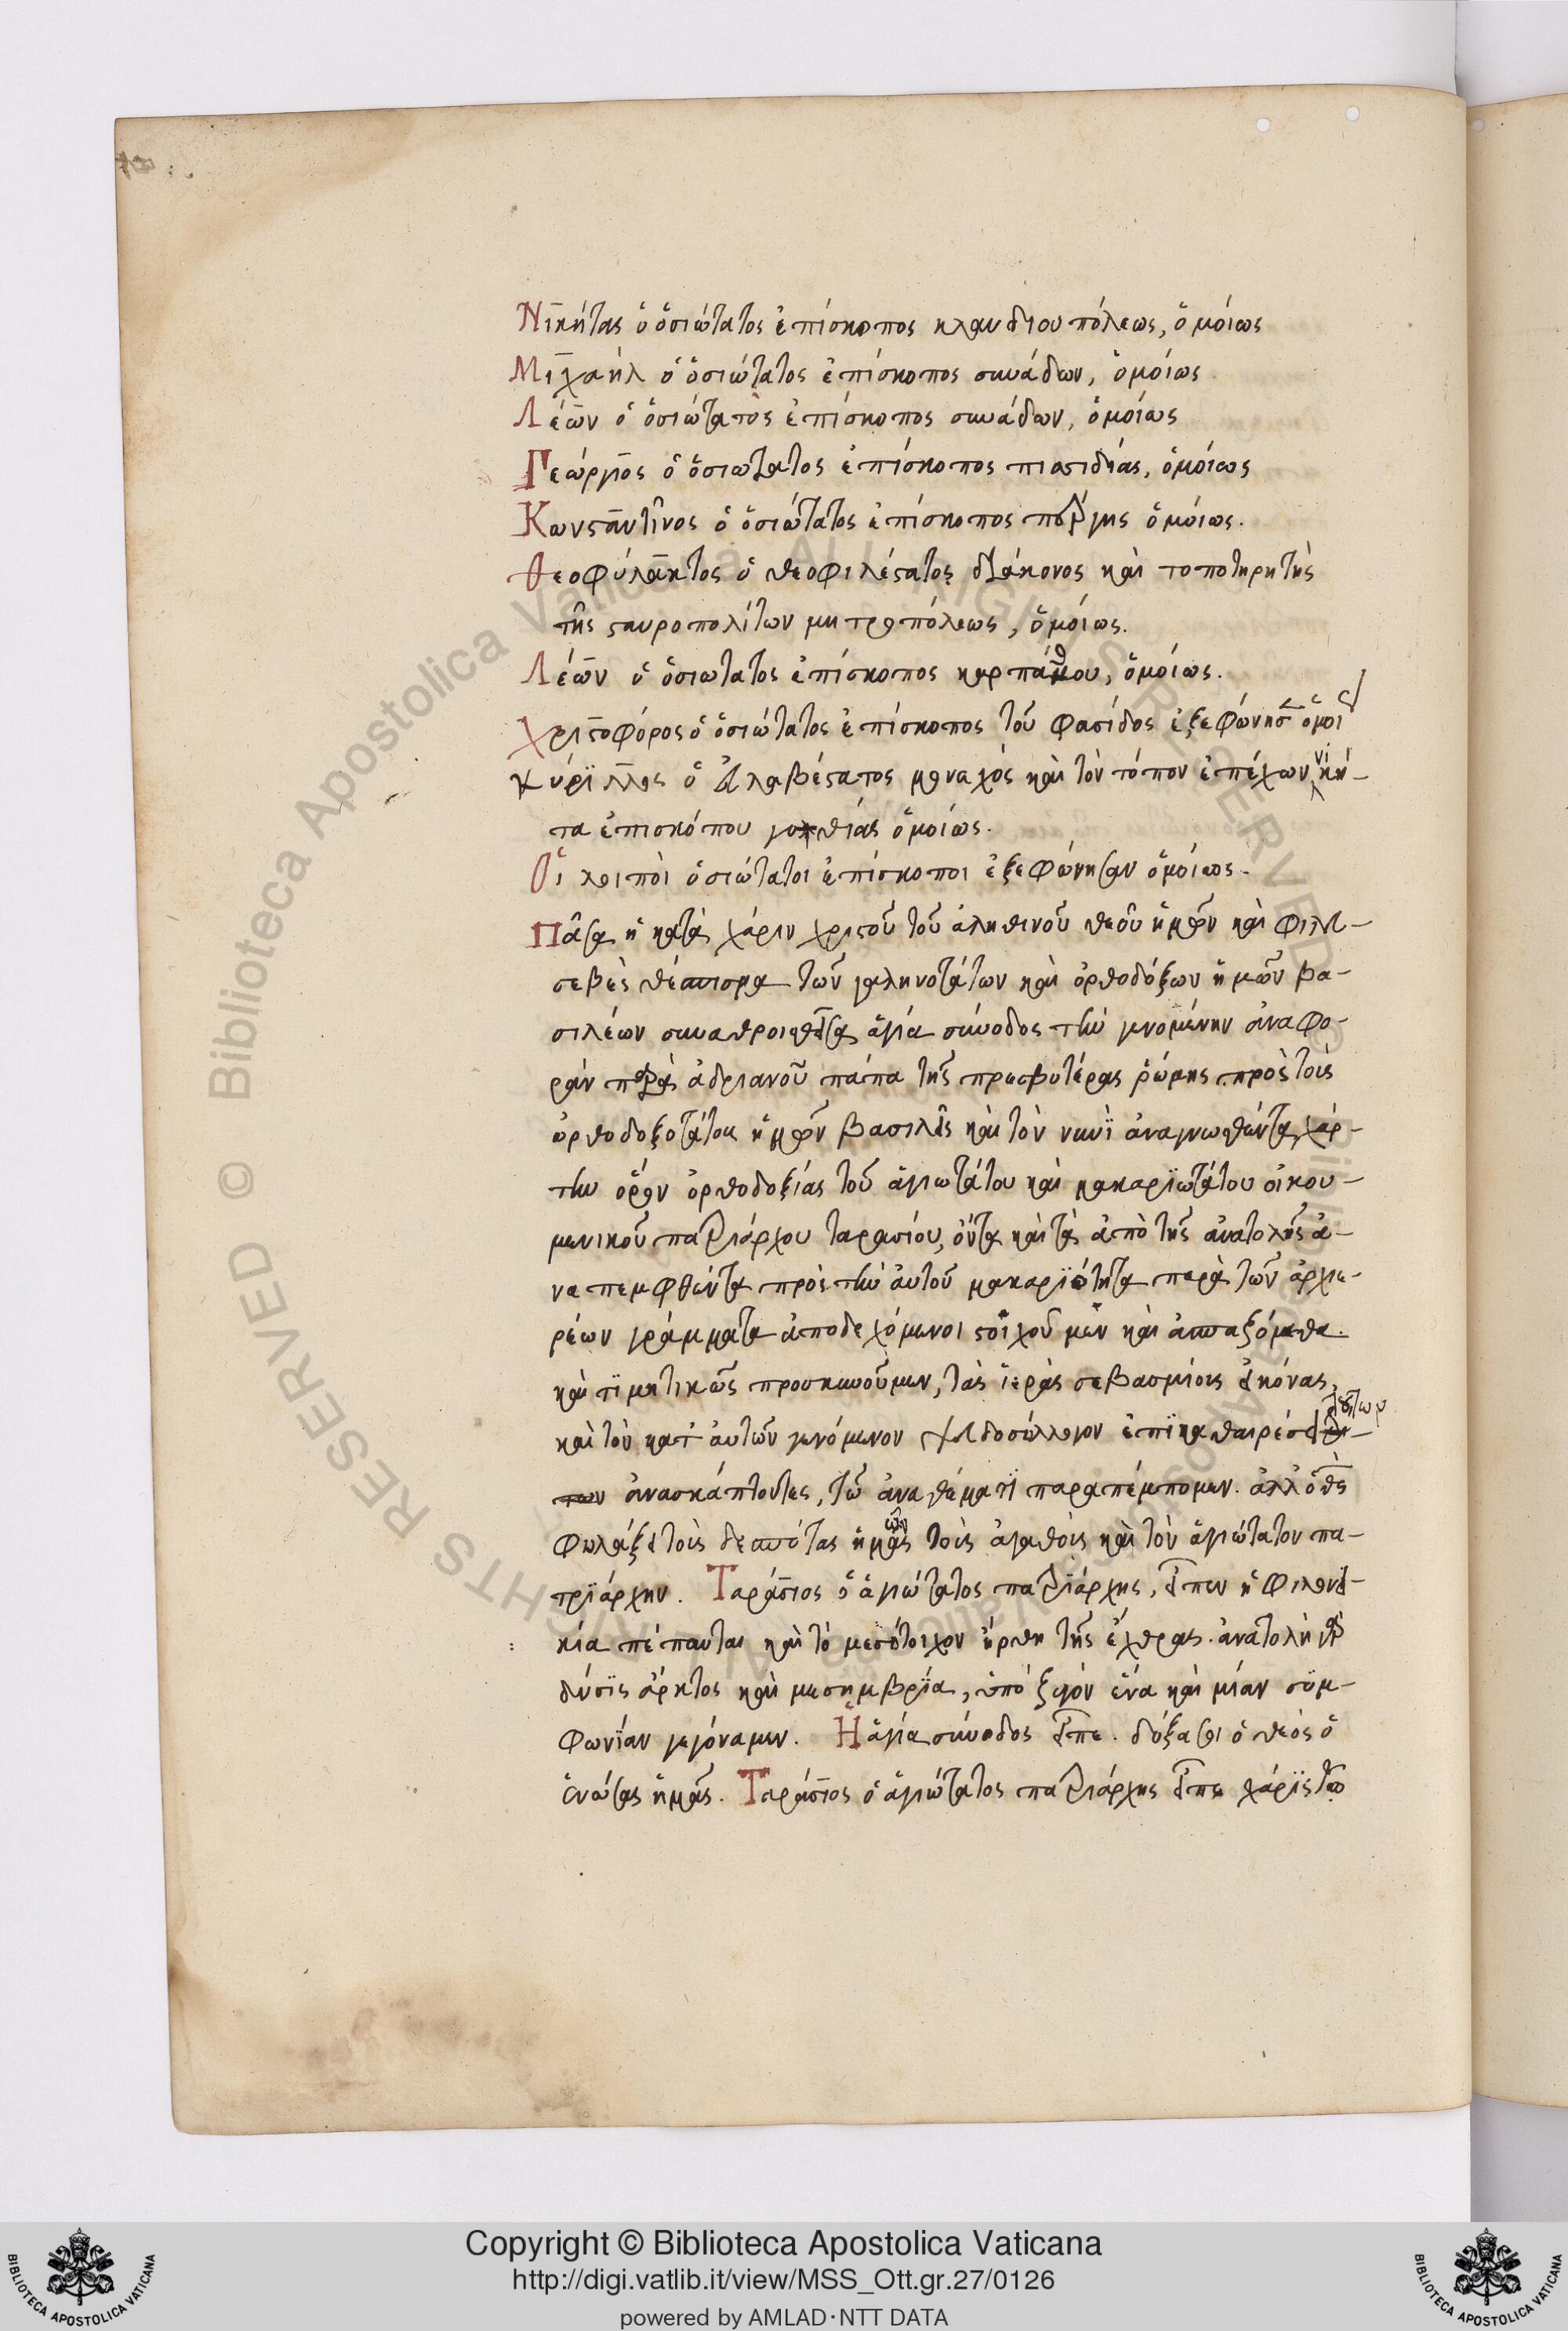 Νικήτας ὁ ὁσιώτατος ἐπίσκοπος κλαυδιουπόλεως, ὁμοίως
Μιχαὴλ ὁ ὁσιώτατος ἐπίσκοπος συνάδων, ὁμοίως.
Λέων ὁ ὁσιώτατος ἐπίσκοπος συνάδων, ὁμοίως
Γεώργιος ὁ ὁσιωτατος ἐπίσκοπος πισιδίας, ὁμοίως
Κωνςαντῖνος ὁ ὁσιώτατος ἐπίσκοπος πέργης ὁμοίως.
Θεοφύλακτος ὁ θεοφιλέςατος διάκονος καὶ τοποτηρητὴς
τῆς ςαυροπολίτων μητροπόλεως, ὁμοίως.
Λέων ὁ ὁσιωτατος ἐπίσκοπος καρπάθου, ὁμοίως.
Χριςοφόρος ὁ ὁσιώτατος ἐπίσκοπος τοῦ φασίδος ἐξεφώνησ ὁμοι
Κύριλλος ὁ εὐλαβέςατος μοναχὸς καὶ τὸν τόπον ἐπέχων νική-
τα ἐπισκόπου γοτθίας ὁμοίως.
Οἱ λοιποὶ ὁσιώτατοι ἐπίσκοποι ἐξεφώνησαν ὁμοίως.
Πᾶσα ἡ κατὰ χάριν χριςοῦ τοῦ ἀληθινοῦ θεοῦ ἡμῶν καὶ φιλευ-
σεβὲς θέσπισμα τῶν γαληνοτάτων καὶ ὀρθοδόξων ἡμῶν βα-
σιλέων συναθροισθεῖσα ἁγία σύνοδος τὴν γενομένην ἀναφο-
ρὰν παρὰ ἀδριανοῦ πάπα τῆς πρεσβυτέρας ῥώμης πρὸς τοὺς
ὀρθοδοξοτάτους ἡμῶν βασιλεῖς καὶ τὸν νυνὶ ἀναγνωσθέντα χάρ-
την ὅρον ὀρθοδοξίας τοῦ ἁγιωτάτου καὶ μακαριωτάτου οἰκου-
μενικοῦ πατριάρχου ταρασίου, ὄντα καὶ τὰ ἀπὸ τῆς ἀνατολῆς ἀ-
ναπεμφθέντα πρὸς τὴν αὐτοῦ μακαριότητα παρὰ τῶν ἀρχιε-
ρέων γράμματα ἀποδεχόμενοι ςοιχοῦμεν καὶ ἀσπαζόμεθα.
καὶ τιμητικῶς προσκυνοῦμεν, τὰς ἱερὰς σεβασμίους εἰκόνας,
καὶ τὸν κατ αὐτῶν γενόμενον ψευδοσύλλογον ἐπὶ καθαιρέσει τούτων
των ἀνασκάπτοντες, τῶ ἀναθέματι παραπέμπομεν. ἀλλ ὁ θς
φυλάξει τοὺς δεσπότας ἡμῶν τοὺς ἀγαθοὺς καὶ τὸν ἁγιώτατον πα-
τριάρχην. Ταράσιος ὁ ἁγιώτατος πατριάρχης, εἶπεν ἡ φιλονει-
κία πέπαυται καὶ τὸ μεσότοιχον ἤρθη τῆς ἔχθρας. ἀνατολὴ γὰρ
δύσις ἄρκτος καὶ μεσημβρία, ὑπὸ ζυγὸν ἕνα καὶ μίαν συμ-
φωνίαν γεγόναμεν. Ἡ ἁγία σύνοδος εἶπε. δόξα σοι ὁ θεὸς ὁ
ἑνώσας ἡμᾶς. Ταράσιος ὁ ἁγιώτατος πατριάρχης εἶπε χάρις τῶ
Copyright © Biblioteca Apostolica Vaticana
http://digi.vatlib.it/view/MSS_Ott.gr.27/0126
powered by AMLAD·NTT DATA